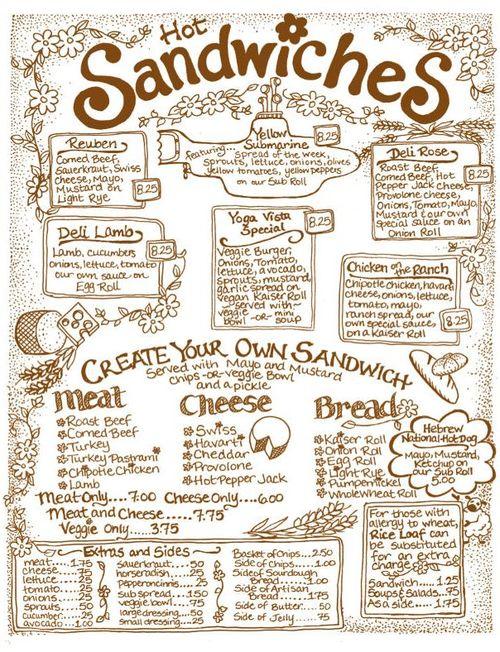 Hot
Sandwiches
Reuben
Corned Beef,
Sauerkraut, Swiss
cheese, Mayo,
Mustard on
Light Rye
8.25
Yellow
Submarine
8.25
Featuring... Spread of the week,
sprouts, lettuce, onions, olives
yellow tomatoes, yellow peppers
on our Sub Roll
Deli Rose
8.25
Roast Beef,
Corned Beef, Hot
Pepper Jack cheese,
Provolone cheese,
Onions, Tomato, Mayo,
Mustard & our own
special sauce on an
Onion Roll
Deli Lamb
8.25
Lamb, cucumbers
onions, lettuce, tomato
our own sauce on
Egg Roll
Yoga Vista
Special
8.25
Veggie Burger,
Onions, Tomato,
lettuce, avocado,
sprouts, mustard,
garlic spread on
vegan Kaiser Roll
served with
veggie -or- mini
bowl soup
Chicken on the Ranch
Chipotle chicken, havarti
cheese, onions, lettuce,
tomato, mayo,
ranch spread, our
own special sauce,
on a Kaiser Roll
8.25
Create Your Own Sandwich
Served with Mayo and Mustard
chips -or- veggie Bowl
and a pickle
Meat
Roast Beef
Corned Beef
Turkey
Turkey Pastrami
Chipotle Chicken
Lamb
Cheese
Swiss
Havarti
Cheddar
Provolone
Hot Pepper Jack
Bread
Kaiser Roll
Onion Roll
Egg Roll
Light Rye
Pumpernickel
Whole Wheat Roll
Hebrew
National Hot Dog
Mayo, Mustard,
Ketchup on
our Sub Roll
5.00
Meat Only....7.00 Cheese Only....6.00
Meat and Cheese......7.75
Veggie Only....3.75
Extras and Sides
meat.....1.75
cheese....75
lettuce....25
tomato....25
onions....25
sprouts...50
cucumber..25
avocado..1.00
sauerkraut....50
horseradish...25
Pepperoncinis...25
sub spread...1.50
veggie bowl...75
large dressing...50
small dressing...25
Basket of chips....2.50
Side of Chips.....1.00
Side of Sourdough
Bread.....1.00
Side of Artisan
Bread.....1.75
Side of Butter....50
Side of Jelly.....75
For those with
allergy to wheat,
Rice Loaf can
be substituted
for an extra
charge
Sandwich....1.25
Soups & Salads..75
As a side....1.75